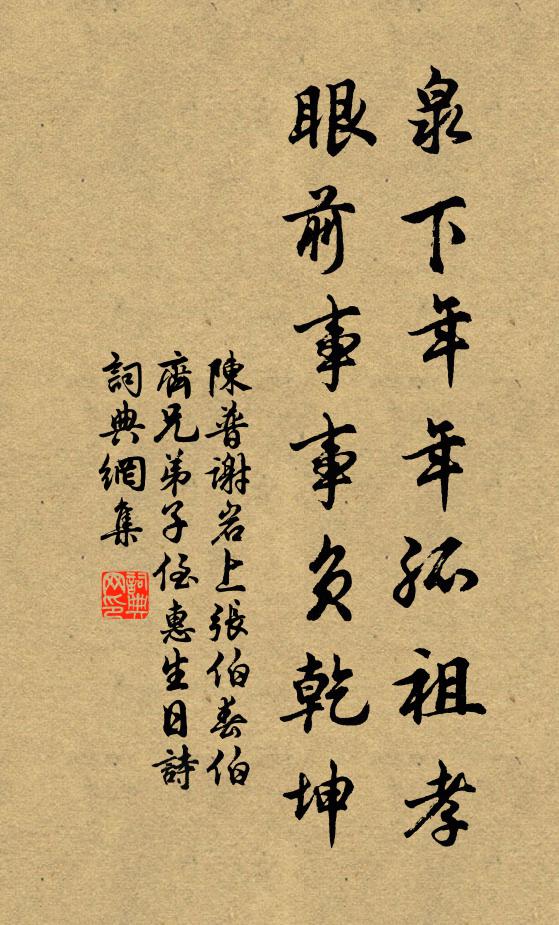 泉下年年孤祖孝
眼前事事負乾坤
陳普謝岩上張伯春伯
齊兄弟子侄惠生日詩
詞典網集
詞典网印